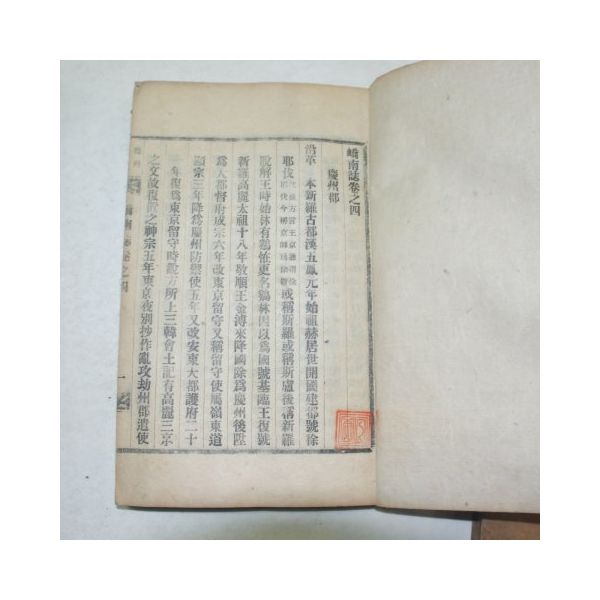 嶠南誌卷之四
慶州郡
沿革 本新羅古都漢五鳳元年始祖赫居世開國建都號徐
耶伐 或稱斯羅或稱斯盧後稱新羅
脫解王時始林有鷄恠更名鷄林因以爲國號基臨王復號
新羅高麗太祖十八年敬順王金溥來降國除爲慶州後陞
爲大都督府成宗六年改東京留守又稱留守使屬嶺東道
顯宗三年降爲慶州防禦使五年又改安東大都護府二十
一年復爲東京留守時銳方所上三韓會土記有高麗三京
之文故復置之神宗五年東京夜別抄作亂攻劫州郡遣使